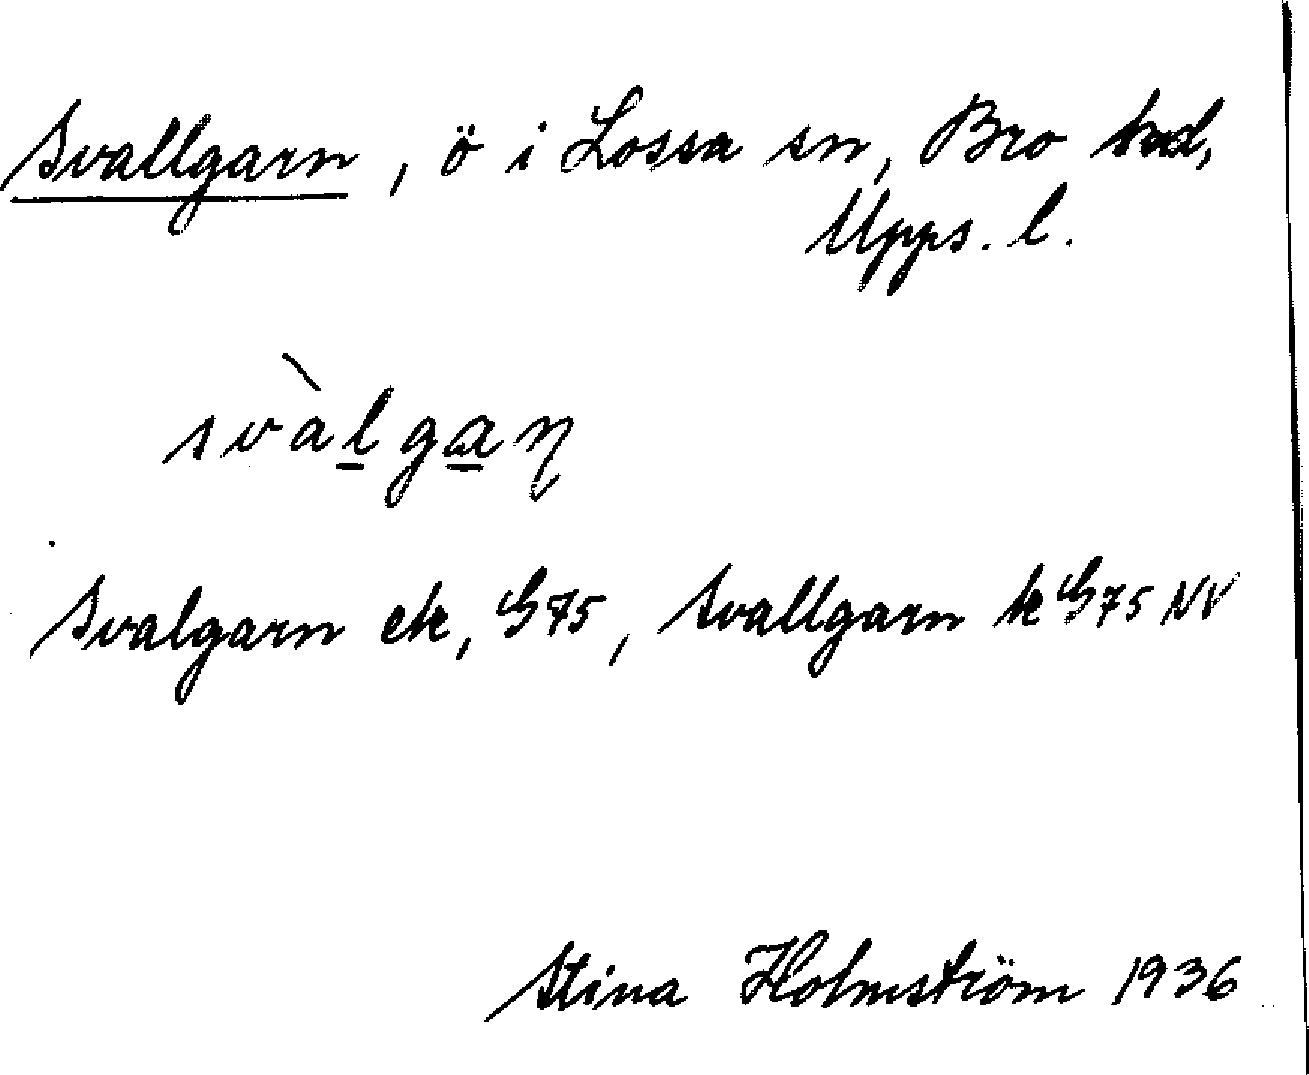 Svallgarn, ö i Lossa sn, Bro hd,
Upps. l.
svàlgaṇ
Svalgarn ek, G75, Svallgarn tk G75 NV
Stina Holmström 1936